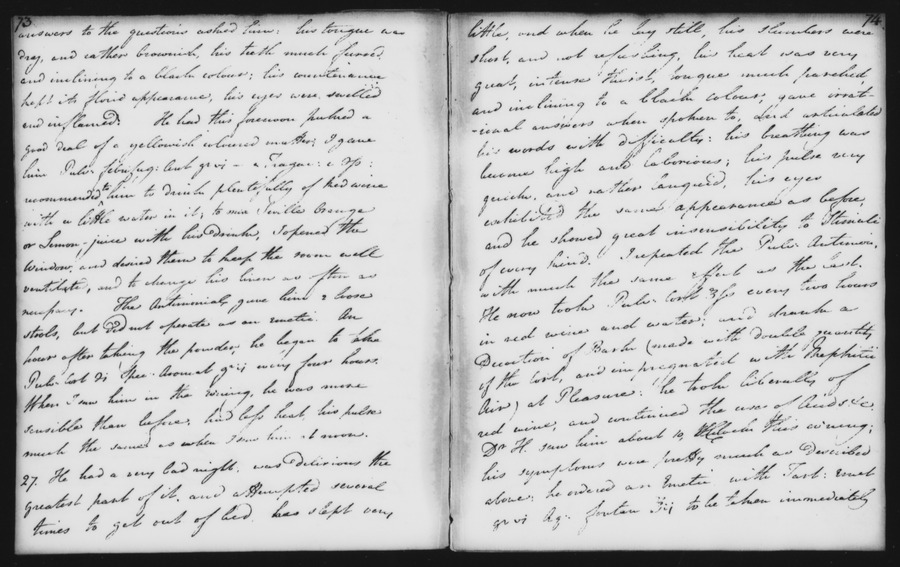 73
answers to the questions asked him; his tongue was
dry, and rather brownish, his teeth much furred,
and inclining to a black colour; his countenance
kept its florid appearance, his eyes were swelled
and inflamed. He had this forenoon puked a
good deal of a yellowish coloured matter; I gave
him Pulv. febrifug: Lent gr vi
recommended to him to drink plentifully of red wine
with a little water in it; to mix Seville Orange
or Lemon-juice with his Drink, I opened the
Window, and desired them to keep the room well
ventilate, and to change his linen as often as
necessary. The Antimonial, gave him 2 loose
stools, but did not operate as an emetic. An
hour after taking the powder, he began to take
Pulv. Cort Aromat every four hours.
When I saw him in the evening, he was more
sensible than before, had less heat, his pulse
much the same as when I saw him at noon.
27. He had a very bad night, was Delirious the
greatest part of it, and attempted several
times to get out of bed, has slept very
74
little, and when he lay still, his slumbers were
short, and not refreshing, his heat was very
great, intense thirst, tongue much parched
and inclining to a black colour; gave irrat-
-ional answers when spoken to, and articulated
his words with difficulty: his breathing was
become high and laborious; his pulse very
quick, and rather languid, his eyes
exhibited the same appearance as before,
and he showed great insensibility to Stimuli
of every kind. I repeated the Pulv Antimon.
with much the same effect as the last.
He now took Pulv. Cort every two hours
in red wine and water; and drank a
Decoction of Bark (made with double quantity
of the Cort, and impregnated with Mephitic
Air) at Pleasure: he took liberally of
red wine, and continued the use of Acids &c.
Dr H. saw him about 10, this evening;
his symptoms were pretty much as Described
above; he ordered an Emetic with Tart: emet
gr vi Aq: fontan to be taken immediately